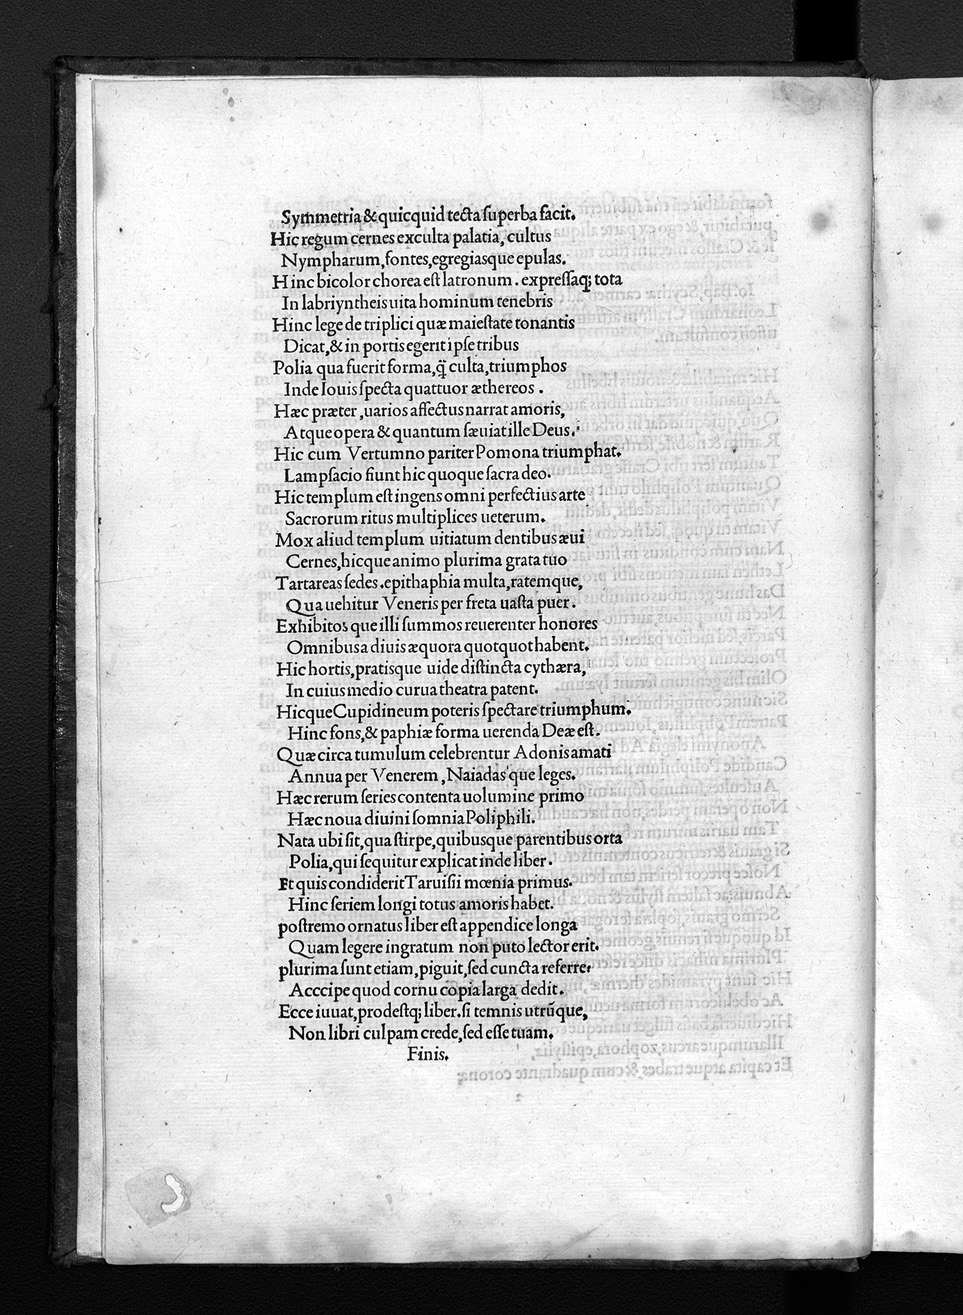 Symmetria & quicquid tecta ſuperba facit.
Hic regum cernes exculta palatia, cultus
Nympharum, fontes, egregiasque epulas.
Hinc bicolor chorea eſt latronum. expreſſaq; tota
In labriyntheis uita hominum tenebris
Hinc lege de triplici quæ maieſtate tonantis
Dicat, & in portis egerit ipſe tribus
Polia qua fuerit forma, q̃ culta, triumphos
Inde Iouis ſpecta quattuor æthereos.
Hæc præter, uarios affectus narrat amoris,
Atque opera & quantum ſæuiat ille Deus.
Hic cum Vertumno pariter Pomona triumphat.
Lampſacio fiunt hic quoque ſacra deo.
Hic templum eſt ingens omni perfectius arte
Sacrorum ritus multiplices ueterum.
Mox aliud templum uitiatum dentibus æui
Cernes, hicque animo plurima grata tuo
Tartareas ſedes. epithaphia multa, ratemque,
Qua uehitur Veneris per freta uaſta puer.
Exhibitos que illi ſummos reuerenter honores
Omnibus a diuis æquora quotquot habent.
Hic hortis, pratisque uide diſtincta cythæra,
In cuius medio curua theatra patent.
Hicque Cupidineum poteris ſpectare triumphum.
Hinc fons, & paphiæ forma uerenda Deæ eſt.
Quæ circa tumulum celebrentur Adonis amati
Annua per Venerem, Naiadas que leges.
Hæc rerum ſeries contenta uolumine primo
Hæc noua diuini ſomnia Poliphili.
Nata ubi ſit, qua ſtirpe, quibusque parentibus orta
Polia, qui ſequitur explicat inde liber.
Et quis condiderit Taruiſii mœnia primus.
Hinc ſeriem longi totus amoris habet.
poſtremo ornatus liber eſt appendice longa
Quam legere ingratum non puto lector erit.
plurima ſunt etiam, piguit, ſed cuncta referre
Acccipe quod cornu copia larga dedit.
Ecce iuuat, prodeſtq; liber. ſi temnis utrũque,
Non libri culpam crede, ſed eſſe tuam.
Finis.